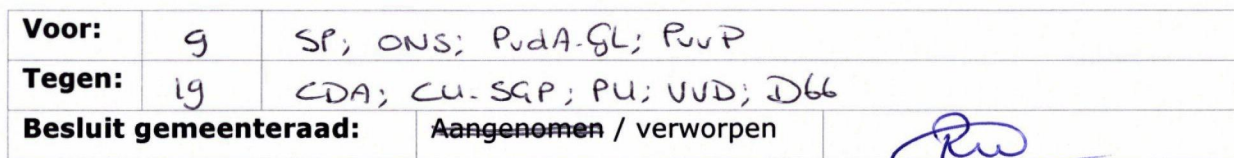 Voor: 9 SP; ONS; PvdA-GL; PvvP
Tegen: 19 CDA; CU-SGP; PU; VVD; D66
Besluit gemeenteraad: Aangenomen / verworpen